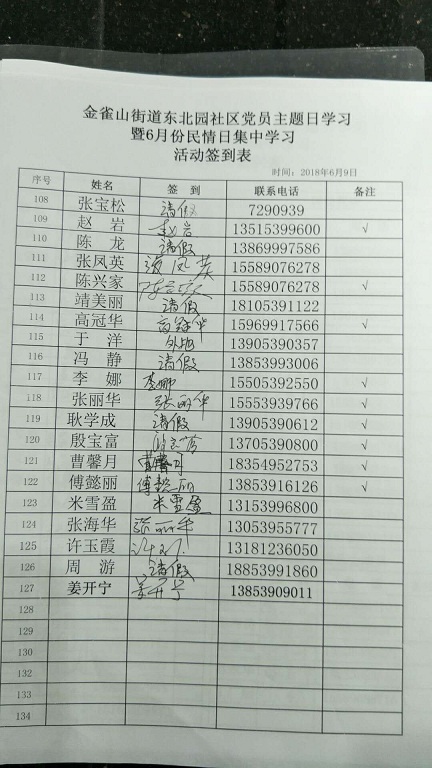 金雀山街道东北园社区党员主题日学习
暨6月份民情日集中学习
活动签到表
时间：2018年6月9日
序号 姓名 签 到 联系电话 备注
108 张宝松 请假 7290939
109 赵 岩 赵岩 13515399600 √
110 陈 龙 请假 13869997586
111 张凤英 张凤英 15589076278
112 陈兴家 15589076278 √
113 靖美丽 请假 18105391122
114 高冠华 高冠华 15969917566 √
115 于 洋 外地 13905390357
116 冯 静 请假 13853993006
117 李 娜 李娜 15505392550 √
118 张丽华 张丽华 15553939766 √
119 耿学成 请假 13905390612 √
120 殷宝富 13705390800 √
121 曹馨月 曹馨月 18354952753 √
122 傅懿丽 傅懿丽 13853916126 √
123 米雪盈 米雪盈 13153996800
124 张海华 张丽华 13053955777
125 许玉霞 13181236050
126 周 游 请假 18853991860
127 姜开宁 姜开宁 13853909011
128
129
130
132
133
134